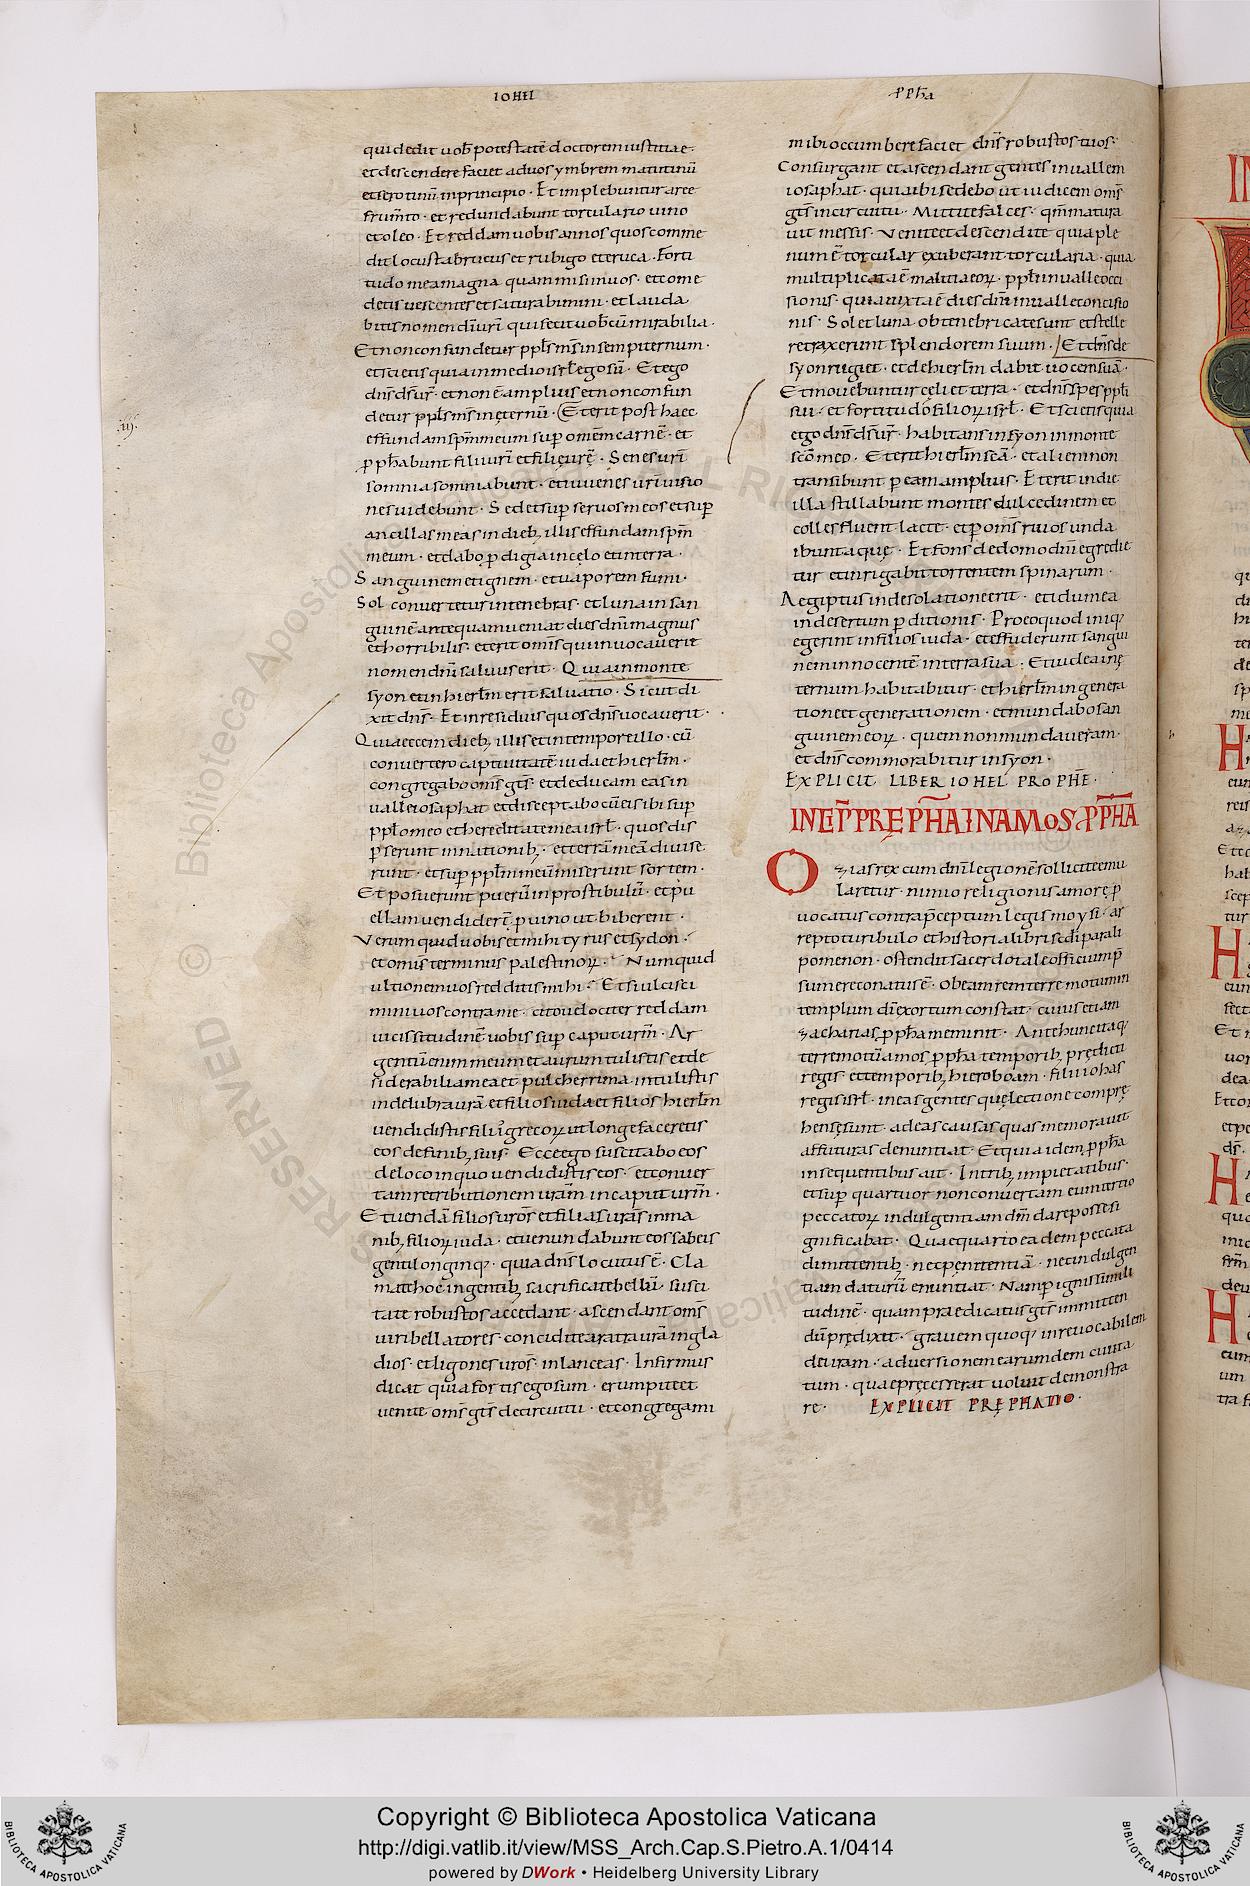 IOHEL
PPHA
qui dedit uob̄ potestatē doctorem iustitiae ·
et descendere faciet ad uos ymbrem matutinū
et serotinū in principio · Et implebuntur aree
frum̄to · et redundabunt torcularia uino
et oleo · Et reddam uobis annos quos come
dit locusta brucus et rubigo et eruca · Forti
tudo mea magna quam misi in uos · et come
detis uescentes et saturabimini · et lauda
bitis nomen dn̄i uri̅ qui fecit uob̄cū mirabilia ·
Et non confundetur ppl̄s ms̄ in sempiternum ·
et scietis quia in medio isrl̄ ego sū · Et ego
dn̄s ds̄ ur̄ · et non ē amplius et non confun
detur ppl̄s ms̄ in ęternū · Et erit post haec
effundam spm̄ meum sup̱ omēm carnē · et
p̱phabunt filii uri̅ et filię urę̄ · Senes uri̅
somnia somniabunt · et iuuenes uri̅ uisio
nes uidebunt · Sed et sup̱ seruos meos et sup̱
ancillas meas in dieb; illis effundam spm̄
meum · et dabo p̱digia in cęlo et in terra ·
Sanguinem et ignem · et uaporem fumi ·
Sol conuertetur in tenebras · et luna in san
guinē antequam ueniat dies dn̄i magnus
et horribilis · et erit om̄s qui inuocauerit
nomen dn̄i saluus erit · Quia in monte
syon et in hierlm̄ erit saluatio · Sicut di
xit dn̄s · Et in residuis quos dn̄s uocauerit ·
Quia ecce in dieb; illis et in tempore illo · cū
conuertero captiuitatē iuda et hierlm̄ ·
congregabo om̄s gt̄s · et deducam eas in
ualle iosaphat · et disceptabo cū eis ibi sup̱
ppl̄o meo et hereditate mea isrl̄ · quos dis
p̱serunt in nationib; · et terrā meā diuise
runt · et sup̱ ppl̄m meū miserunt sortem ·
Et posuerunt puerū in prostibulū · et pu
ellam uendider̄t p̱ uino ut biberent ·
Verum quid uobis et mihi tyrus et sydon ·
et omis̄ terminus palestinoꝝ · Numquid
ultionem uos redditis mihi · Et si ulcisci
mini uos contra me · cito uelociter reddam
uicissitudinē uobis sup̱ caput urm̄ · Ar
gentū enim meum et aurum tulistis et de
siderabilia mea et pulcherrima intulistis
in delubra ura̅ et filios iuda et filios hierlm̄
uendidistis filiis grecoꝝ ut longe faceretis
eos de finib; suis · Ecce ego suscitabo eos
de loco in quo uendidistis eos · et conuer
tam retributionem uram̄ in caput urm̄ ·
Et uendā filios uros̄ et filias uras̄ in ma
nib; filioꝝ iuda · et uenundabunt eos sabeis
genti longinq; · quia dn̄s locutus ē · Cla
mate hoc in gentib; sacrificate bellū · susci
tate robustos accedant · ascendant om̄s
uiri bellatores · concidite aratra ura̅ in gla
dios · et ligones uros̄ · in lanceas · Infirmus
dicat quia fortis ego sum · erumpite et
uenite om̄s gt̄s de circuitu · et congregami
ni ibi occumbere faciet dn̄s robustos tuos ·
Consurgant et ascendant gentes in uallem
iosaphat · quia ibi sedebo ut iudicem om̄s
gt̄s in circuitu · Mittite falces · qm̄ matura
uit messis · Venite et descendite quia ple
num ē torcular exuberant torcularia · quia
multiplicata ē malitia eoꝝ · ppl̄i in ualle occi
sionis · quia iuxta ē dies dn̄i in ualle concisio
nis · Sol et luna obtenebricate sunt et stelle
retraxerunt splendorem suum · Et dn̄s de
syon rugiet · et de hierlm̄ dabit uocem suā ·
Et mouebuntur cęli et terra · et dn̄s spes ppl̄i
sui · et fortitudo filioꝝ isrl̄ · Et scietis quia
ego dn̄s ds̄ ur̄ · habitans in syon in monte
scō meo · Et erit hierlm̄ scā · et alieni non
transibunt p̱ eam amplius · Et erit in die
illa stillabunt montes dulcedinem et
colles fluent lacte · et p̱ om̄s riuos iuda
ibunt aquę · Et fons de domo dn̄i egredie
tur et inrigabit torrentem spinarum ·
Aegiptus in desolatione erit · et idumea
in desertum p̱ditionis · Pro eo quod iniq;
egerint in filios iuda · et effuderunt sangui
nem innocentē in terra sua · Et iudea in ę
ternum habitabitur · et hierlm̄ in genera
tione et generationem · et mundabo san
guinem eoꝝ · quem non mundaueram ·
et dn̄s commorabitur in syon ·
EXPLICIT LIBER IOHEL PROPHĒ ·
INCIP̄ PRĘPHA IN AMOS P̱PHA
Ozias rex cum dn̄i legionē sollicite emu
laretur · nimio religionis amore p̱
uocatus contra p̄ceptum legis moysi · ar
repto turibulo et historia libri scdi parali
pomenon · ostendit sacerdotale officium p̱
sumere conatus ē · Ob eam rem terre motum in
templum di̅ exortum constat · cuius etiam
zacharias p̱pha meminit · Ante hunc itaq;
terremotū amos p̱pha temporib; prędicti
regis · et temporib; hieroboam · filii iohas
regis isrl̄ · in eas gentes quę lectione comprę
hensę sunt · ad eas causas quas memorauit
affuturas denuntiat · Et quia idem p̱pha
in sequentibus ait · In trib; impietatibus ·
et sup̱ quartuor non conuertam eum tertio
peccatoꝝ indulgentiam dm̄ dare posse si
gnificabat · Qua equario eadem peccata
dimittentib; · nec pęnitentiā · nec indulgen
tiam daturū enuntiat · Nam p̱ ignis simili
tudinē · quam praedicatus gt̄s inmitten
dū prędixit · grauem quoq; inreuocabilem
dei iram · aduersionem earumdem ciuita
tum · quae pręcesserat uoluit demonstra
re · EXPLICIT PRĘPHATIO ·
Copyright © Biblioteca Apostolica Vaticana
http://digi.vatlib.it/view/MSS_Arch.Cap.S.Pietro.A.1/0414
powered by DWork • Heidelberg University Library
BIBLIOTECA APOSTOLICA VATICANA
BIBLIOTECA APOSTOLICA VATICANA